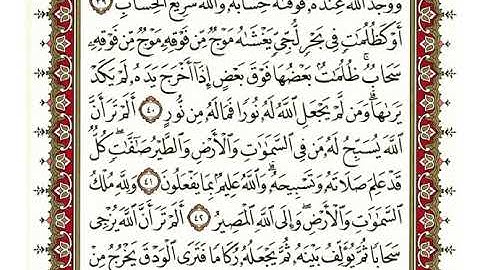 وَوَجَدَ ٱللَّهَ عِندَهُۥ فَوَفَّىٰهُ حِسَابَهُۥۗ وَٱللَّهُ سَرِيعُ ٱلْحِسَابِ ٣٩
أَوْ كَظُلُمَٰتٍ فِى بَحْرٍ لُّجِّىٍّ يَغْشَىٰهُ مَوْجٌ مِّن فَوْقِهِۦ مَوْجٌ مِّن فَوْقِهِۦ
سَحَابٌۚ ظُلُمَٰتٌۢ بَعْضُهَا فَوْقَ بَعْضٍ إِذَآ أَخْرَجَ يَدَهُۥ لَمْ يَكَدْ
يَرَىٰهَاۗ وَمَن لَّمْ يَجْعَلِ ٱللَّهُ لَهُۥ نُورًا فَمَا لَهُۥ مِن نُّورٍ ٤٠ أَلَمْ تَرَ أَنَّ
ٱللَّهَ يُسَبِّحُ لَهُۥ مَن فِى ٱلسَّمَٰوَٰتِ وَٱلْأَرْضِ وَٱلطَّيْرُ صَٰٓفَّٰتٍۖ كُلٌّ
قَدْ عَلِمَ صَلَاتَهُۥ وَتَسْبِيحَهُۥۗ وَٱللَّهُ عَلِيمٌۢ بِمَا يَفْعَلُونَ ٤١ وَلِلَّهِ مُلْكُ
ٱلسَّمَٰوَٰتِ وَٱلْأَرْضِۖ وَإِلَى ٱللَّهِ ٱلْمَصِيرُ ٤٢ أَلَمْ تَرَ أَنَّ ٱللَّهَ يُزْجِى
سَحَابًا ثُمَّ يُؤَلِّفُ بَيْنَهُۥ ثُمَّ يَجْعَلُهُۥ رُكَامًا فَتَرَى ٱلْوَدْقَ يَخْرُجُ مِنْ